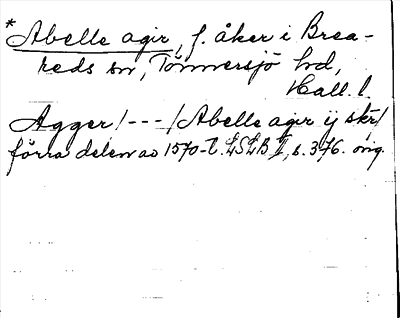 *Abelle agir, f. åker i Brea-
reds sn, Tönnersjö hd,
Hall. l.
Agger/---/Abelle agir ij skr/
förra delen av 1570-t. LSLB II, s. 376. orig.